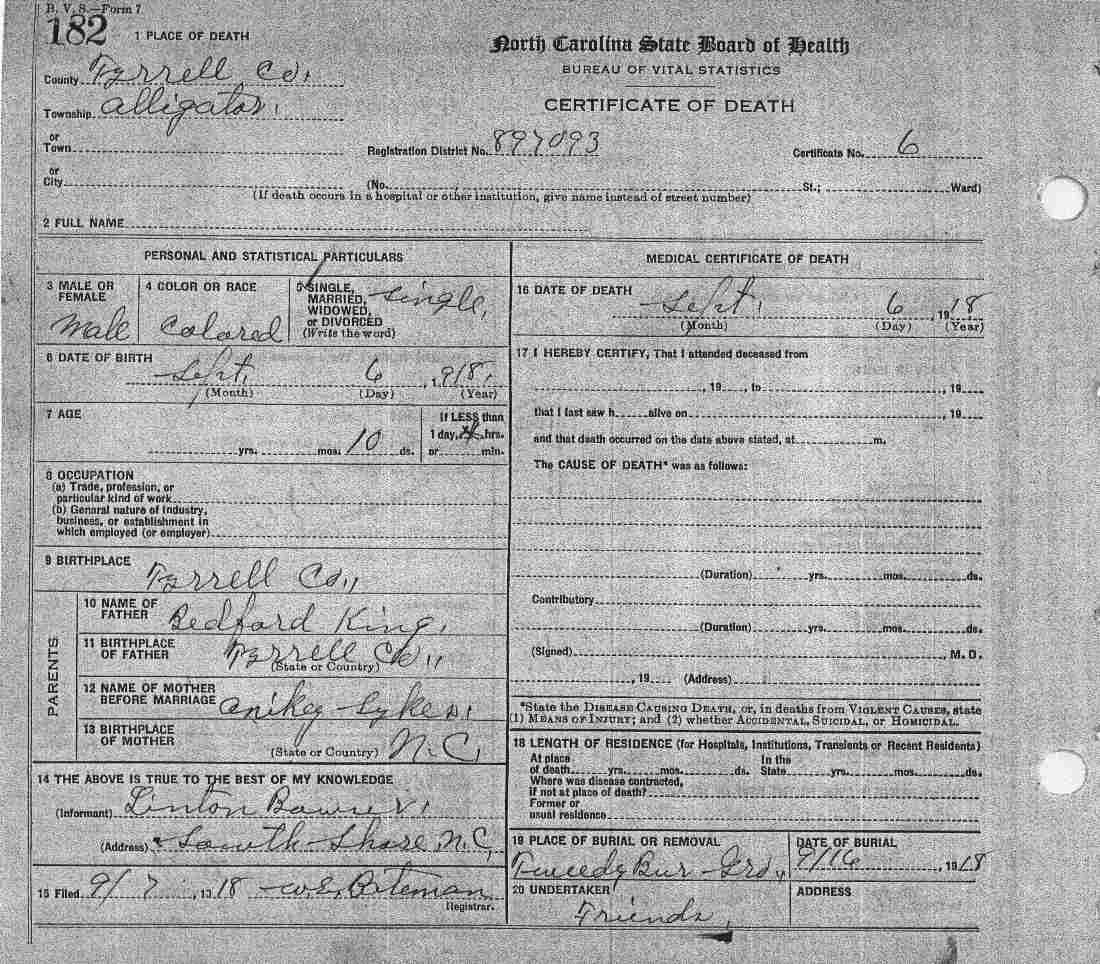 B. V. S.—Form 7
182
1 PLACE OF DEATH
County Tyrrell Co,
Township Alligator,
or Town
or City
North Carolina State Board of Health
BUREAU OF VITAL STATISTICS
CERTIFICATE OF DEATH
Registration District No. 897093 Certificate No. 6
(No. St.; Ward)
(If death occurs in a hospital or other institution, give name instead of street number)
2 FULL NAME
PERSONAL AND STATISTICAL PARTICULARS
3 MALE OR FEMALE Male
4 COLOR OR RACE Colored
5 SINGLE, MARRIED, WIDOWED, or DIVORCED (Write the word) Single,
6 DATE OF BIRTH
Sept, 6, 1918,
(Month) (Day) (Year)
7 AGE
yrs. mos. 10 ds.
If LESS than
1 day, hrs.
or min.
8 OCCUPATION
(a) Trade, profession, or
particular kind of work
(b) General nature of industry,
business, or establishment in
which employed (or employer)
9 BIRTHPLACE Tyrrell Co,,
PARENTS
10 NAME OF FATHER Bedford King,
11 BIRTHPLACE OF FATHER Tyrrell Co,,
(State or Country)
12 NAME OF MOTHER BEFORE MARRIAGE Sykes,
13 BIRTHPLACE OF MOTHER
(State or Country) N.C,
14 THE ABOVE IS TRUE TO THE BEST OF MY KNOWLEDGE
(Informant) Linton Bowser,
(Address) South Shore, N.C,
15 Filed 9/7, 1918 W.E, Bateman
Registrar.
MEDICAL CERTIFICATE OF DEATH
16 DATE OF DEATH
Sept, 6, 1918
(Month) (Day) (Year)
17 I HEREBY CERTIFY, That I attended deceased from
, 19 , to , 19
that I last saw h alive on , 19
and that death occurred on the date above stated, at m.
The CAUSE OF DEATH* was as follows:
(Duration) yrs. mos. ds.
Contributory
(Duration) yrs. mos. ds.
(Signed) M. D.
, 19 (Address)
*State the DISEASE CAUSING DEATH, or, in deaths from VIOLENT CAUSES, state
(1) MEANS OF INJURY; and (2) whether ACCIDENTAL, SUICIDAL, or HOMICIDAL.
18 LENGTH OF RESIDENCE (for Hospitals, Institutions, Transients or Recent Residents)
At place of death yrs. mos. ds. In the State yrs. mos. ds.
Where was disease contracted,
if not at place of death?
Former or
usual residence
19 PLACE OF BURIAL OR REMOVAL
Tweedy Bur Grd,,
DATE OF BURIAL
9/16, 1918
20 UNDERTAKER
Friends,
ADDRESS